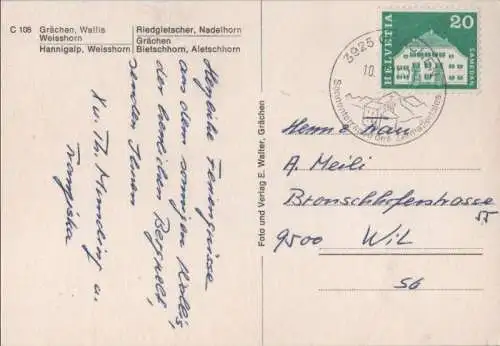 C 108 Grächen, Wallis
Weisshorn
Hannigalp, Weisshorn
Riedgletscher, Nadelhorn
Grächen
Bietschhorn, Aletschhorn
Herzliche Feriengrüsse
aus dem sonnigen Wallis,
der herrlichen Bergwelt,
senden Ihnen
Franziska
Foto und Verlag E. Walter, Grächen
3925
10.
Sonnenterrasse des
HELVETIA
20
SAMEDAN
Herr u. Frau
A. Meili
Bronschhoferstrasse
55
9500 Wil
SG